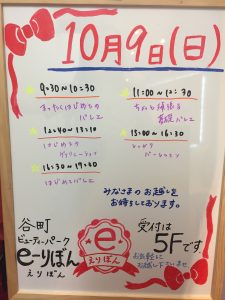 10月9日(日)
9:30〜10:30
まったくはじめての
バレエ
12:40〜13:10
はじめての
16:30〜17:30
はじめてバレエ
11:00〜12:30
ちょっと頑張る
基礎バレエ
15:00〜16:30
みなさまのお越しを
お待ちしております。
谷町
ビューティーパーク
e-りぼん
えりぼん
e
えりぼん
受付は
5Fです
お気軽に
お越し下さいませ